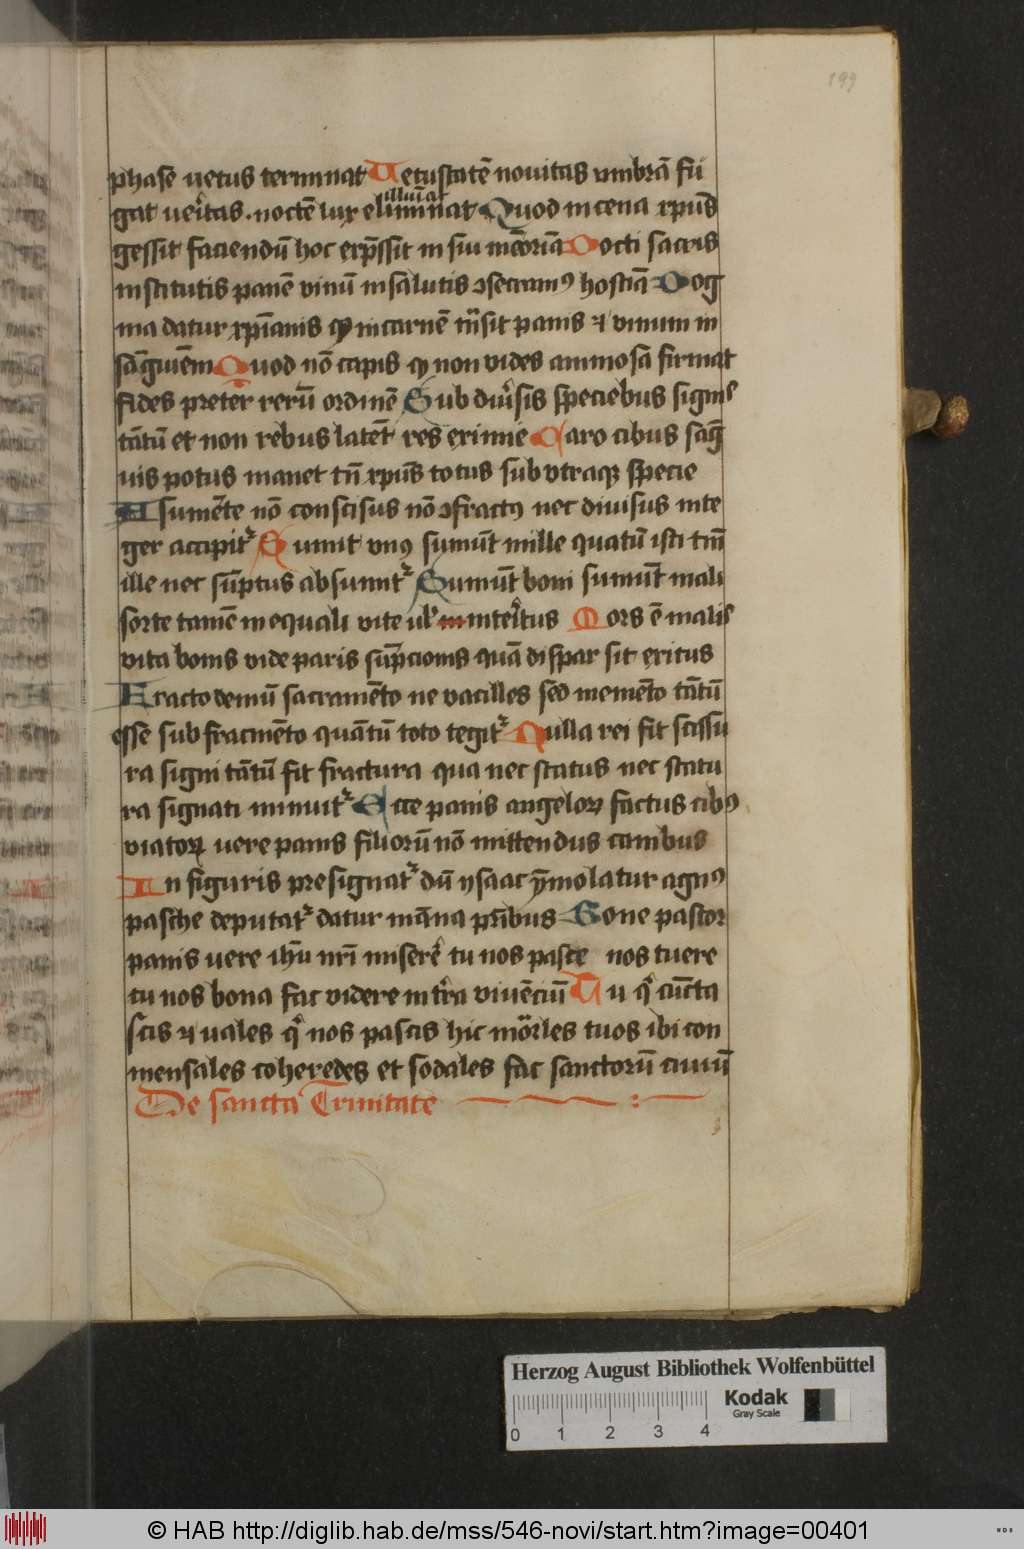 199
phase uetus terminat Uetustatē nouitas vmbrā fu
gat ueritas · noctē lux elimīnat Quod in cena xpūs
illuīat
gessit faciendū hoc exp̄ssit in sui mēoriā Docti sacris
institutis panē vinū in salutis ↄsecramꝰ hostiā Dog
ma datur xp̄ianis ꝙ in carnē tn̄sit panis ⁊ vinum in
sāguīem Quod nō capis ꝙ non vides animosa firmat
fides preter rerū ordinē Sub diu̓sis speciebus signis
tātū et non rebus latēt res eximie Caro cibus sāg
uis potus manet tn̄ xpūs totus sub vtraqꝫ specie
A sumēte nō conscisus nō ↄfractꝰ nec diuisus inte
ger accipit᷑ Sumit vnꝰ sumūt mille quātū isti tm̄
ille nec sūptus absumit᷑ Sumūt boni sumūt mali
sorte tamē inequali vite ul̓ interitus Mors ē malis
vita bonis vide paris sūpcionis quā dispar sit exitus
Fracto demū sacramēto ne vacilles sed memēto tātū
esse sub fracmēto quātū toto tegit᷑ Nulla rei fit scissu
ra signi tātū fit fractura qua nec status nec statu
ra signati minuit᷑ Ecce panis angeloꝝ factus cibꝰ
viatoꝝ vere panis filiorū nō mittendus canibus
In figuris presignat᷑ dū ysaac ymolatur agnꝰ
pasche deputat᷑ datur māna pr̄ibus Bone pastor
panis uere ihū nr̄i miserē tu nos pasce nos tuere
tu nos bona fac videre in tr̄a viuēciū Tu q̓ cūcta
scis ⁊ uales q̓ nos pascis hic mor̄les tuos ibi con
mensales coheredes et sodales fac sanctorū ciuiū
De sancta Trinitate
Herzog August Bibliothek Wolfenbüttel
Kodak
Gray Scale
0 1 2 3 4
© HAB http://diglib.hab.de/mss/546-novi/start.htm?image=00401